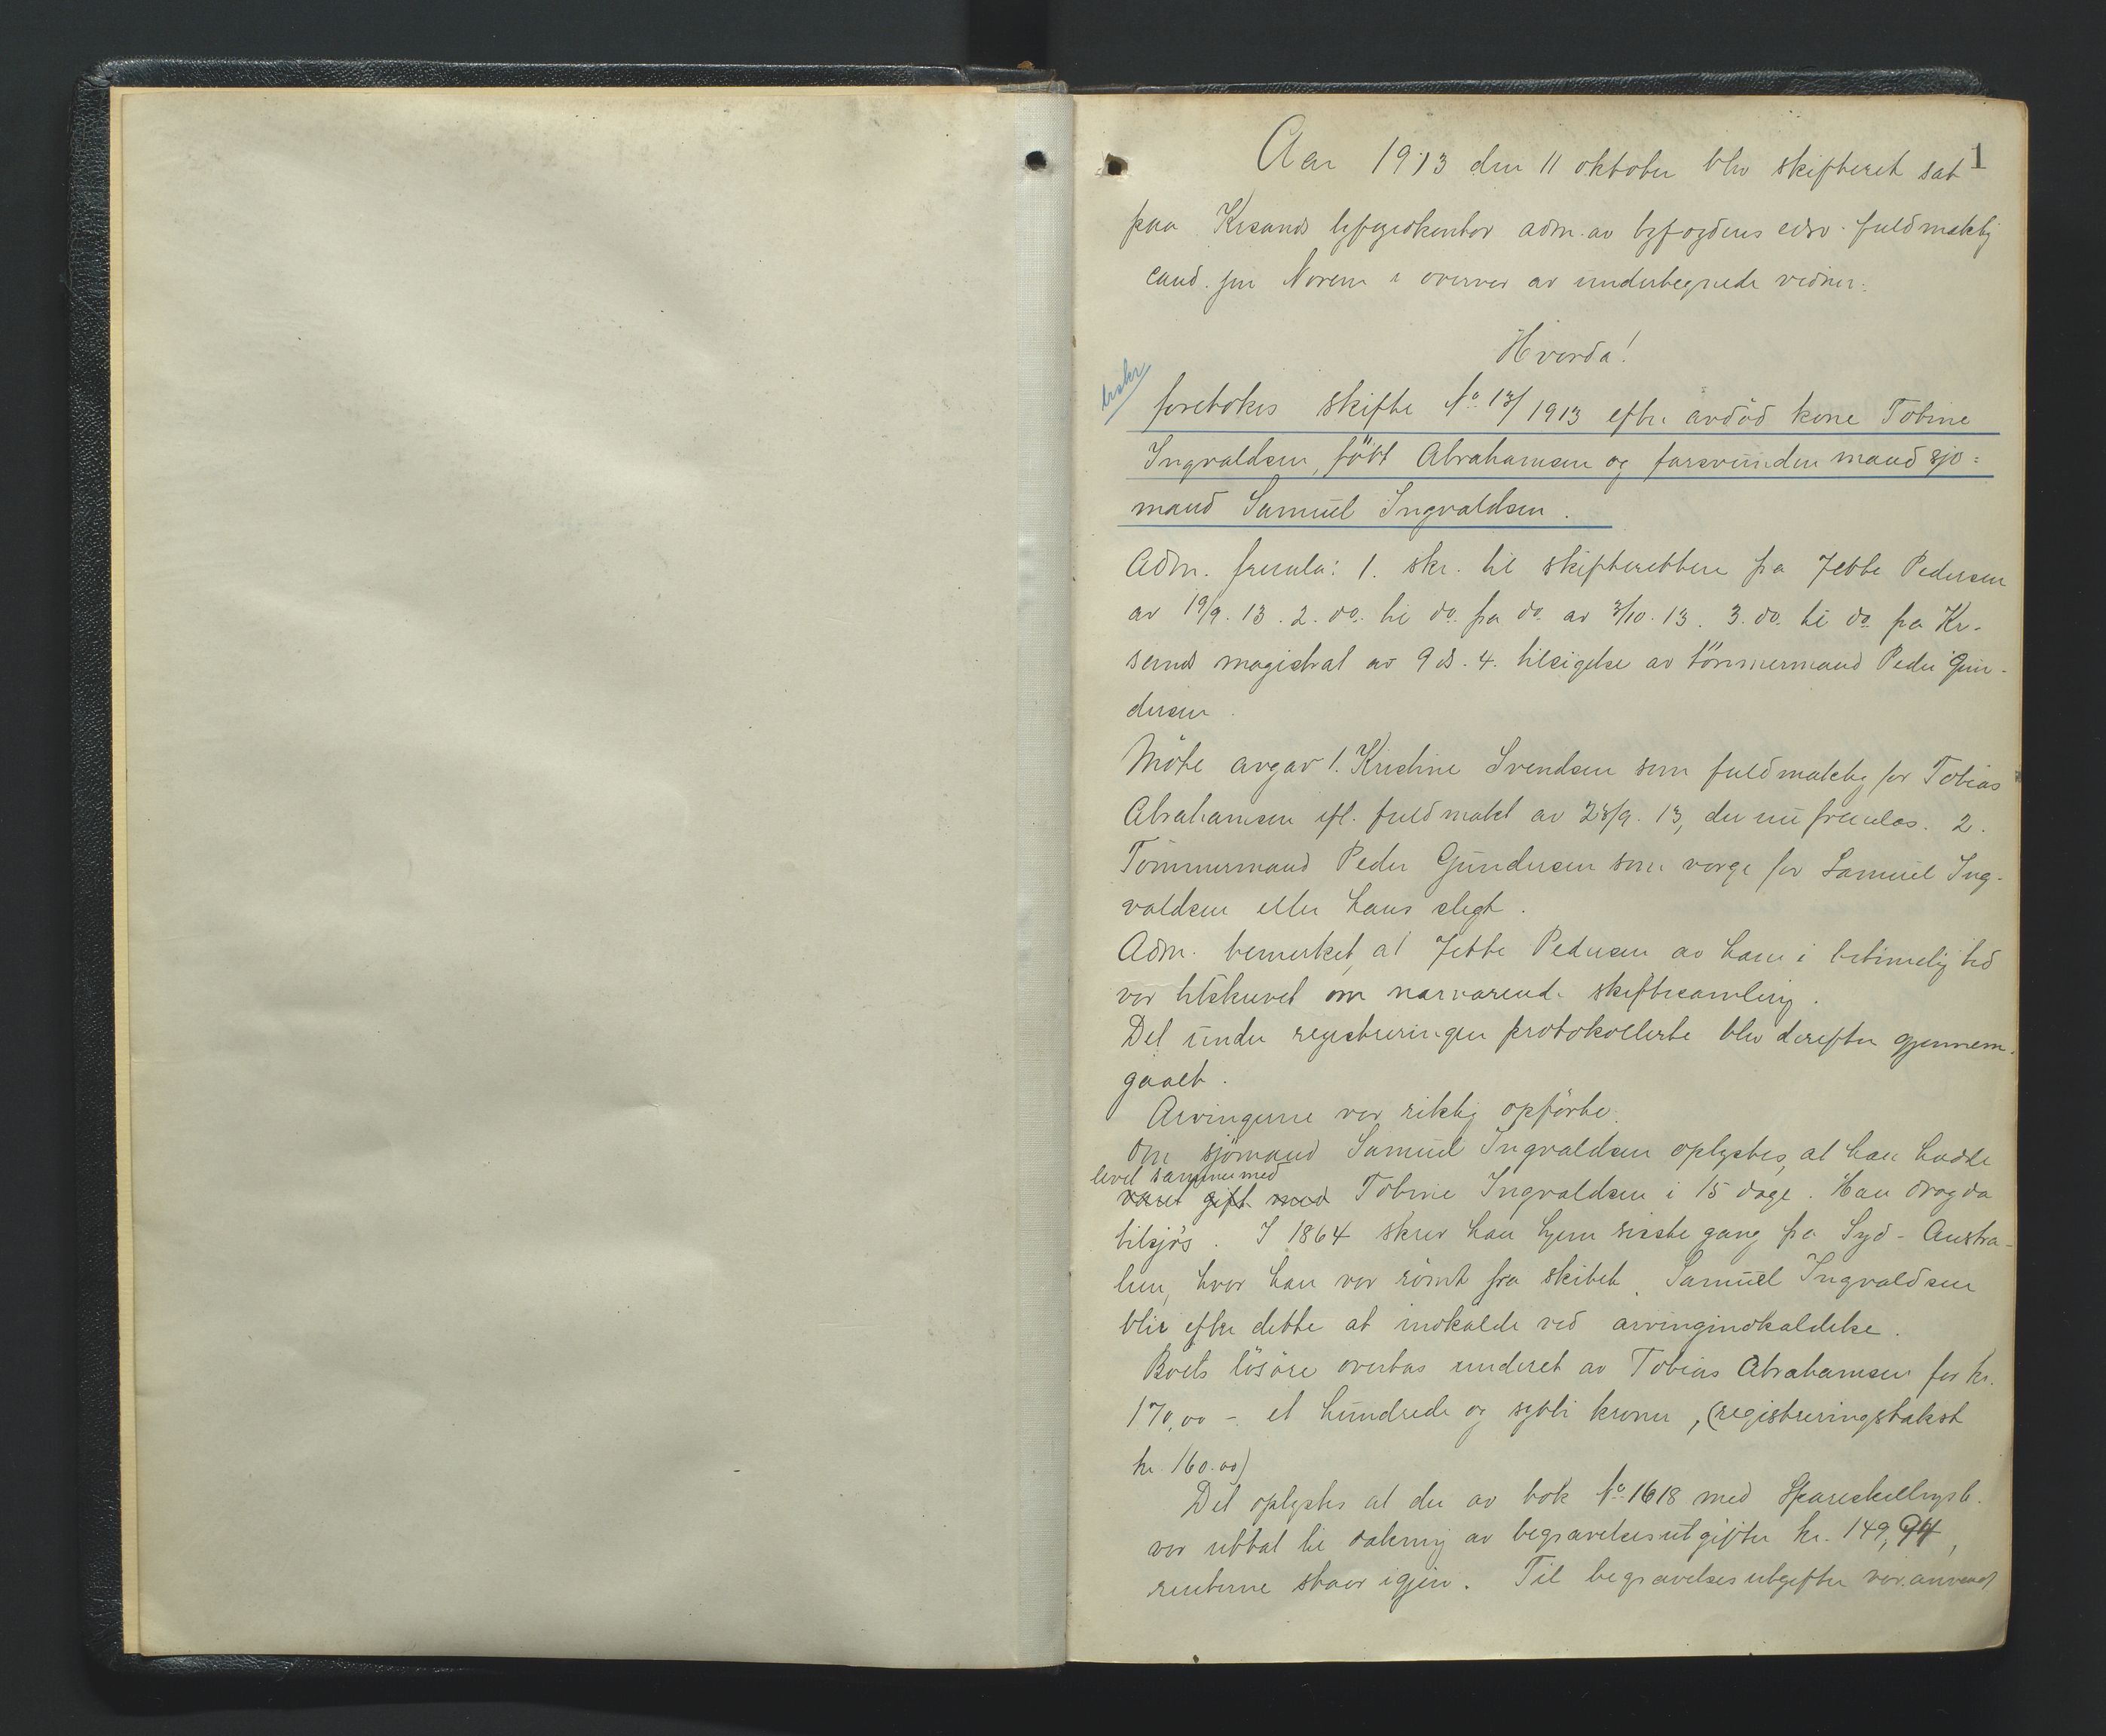 1
Aar 1913 den 11 oktober blev skifteret sat
paa Krsands byfogedkontor adm. av byfogdens edsv. fuldmæktig
cand. jur Norem i overvær av undertegnede vidner.
Hvorda!
beskr
foretokes skifte No 13/1913 efter avdöd kone Tobine
Ingvaldsen, födt Abrahamsen og forsvunden mand sjö=
mand Samuel Ingvaldsen.
Adm. fremla: 1. skr. til skifteretten fra Jette Pedersen
av 19/9. 13. 2. do. til do. fra do. av 3/10. 13. 3. do. til do. fra Kr.
sands magistrat av 9 ds. 4. tilsigelse av tömmermand Peder Gun-
dersen.
Möte avgav 1. Kristine Svendsen som fuldmæktig for Tobias
Abrahamsen efl. fuldmakt av 23/9. 13, der nu fremlas. 2.
Tömmermand Peder Gundersen som verge for Samuel Ing-
valdsen eller hans slegt.
Adm. bemerket, at Jette Pedersen av ham i betimelig tid
var tilskrevet om nærværende skiftesamling.
Det under registreringen protokollerte blev derefter gjennem-
gaaet.
Arvingerne var riktig opförte.
Om sjömand Samuel Ingvaldsen oplystes, at han hadde
levet sammen med
været gift med Tobine Ingvaldsen i 15 dage. Han drog da
tilsjös. I 1864 skrev han hjem sidste gang fra Syd-Austra-
lien, hvor han var römt fra skibet. Samuel Ingvaldsen
blir efter dette at indkalde ved arvingindkaldelse.
Boets lösöre overtas underet av Tobias Abrahamsen for kr.
170,00 - et hundrede og sytti kroner, (registreringstakst
kr. 160.00)
Det oplystes at der av bok No 1618 med Spareskillingsb.
var uttat til dækning av begravelsesutgifter kr. 149,94,
renterne staar igjen. Til begravelsesutgifter var anvendt